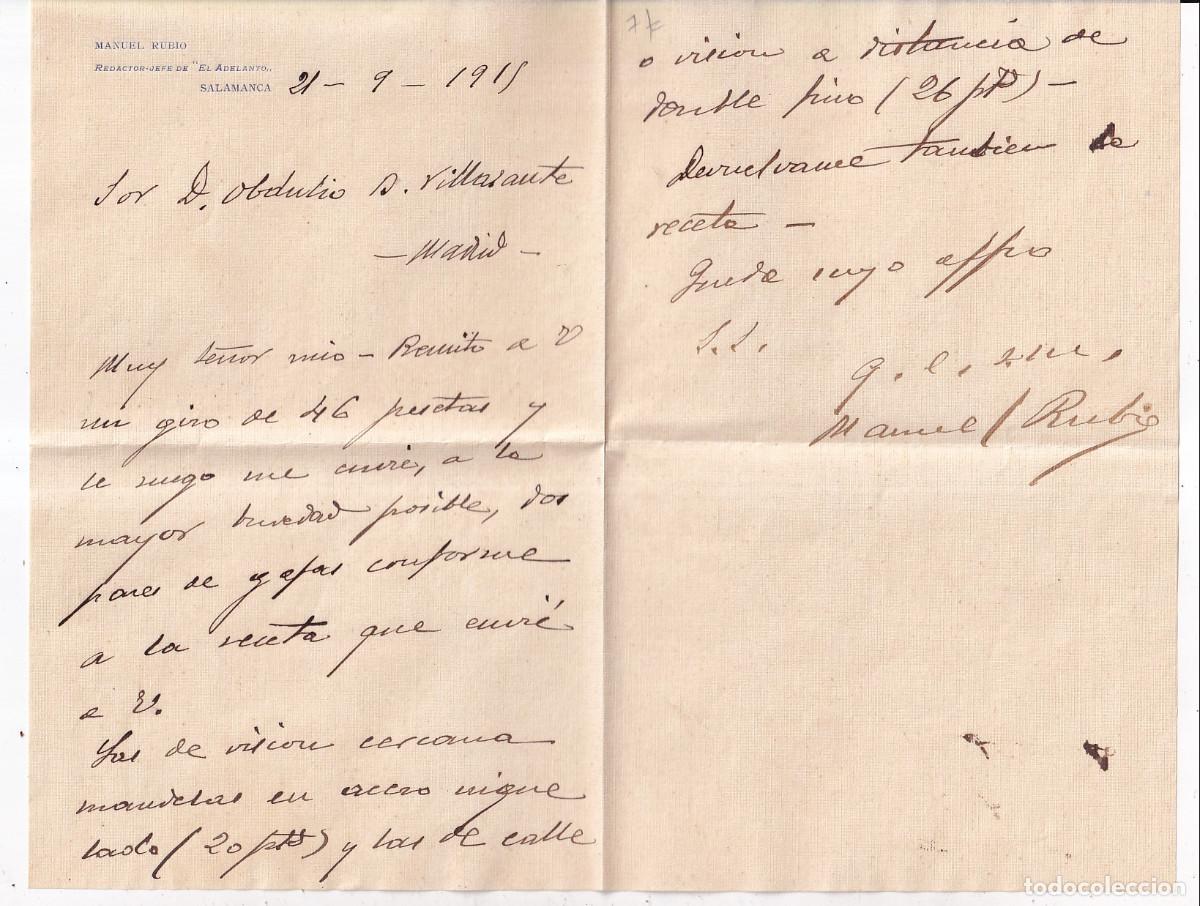 MANUEL RUBIO
REDACTOR-JEFE DE "EL ADELANTO„
SALAMANCA 21 - 9 - 1915
Sor D. Obdulio B. Villasante
- Madrid -
Muy señor mio - Remito a V
un giro de 46 pesetas y
le ruego me envie, a la
mayor brevedad posible, dos
pares de gafas conforme
a la receta que envié
a V.
Las de vision cercana
mandelas en acero nique
lado (20 ptas) y las de calle
o vision a distancia de
double fino (26 pts) -
Devuelvame tambien la
receta -
Queda suyo affmo
S.S.
q. e. s. m.,
Manuel Rubio
todocoleccion